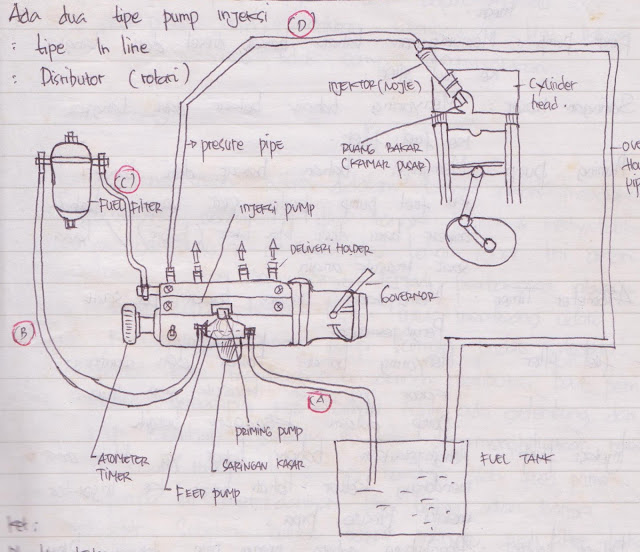 Ada dua tipe pump injeksi
: tipe In line
: Disributor (rotari)
(D)
INJEKTOR (NOJLE)
Cylinder
head.
RUANG BAKAR
(KAMAR PUSAR)
→ presure pipe
OVE
HOL
PIP
(C)
FUEL FILTER
INJEKSI PUMP
DELIVERI HOLDER
GOVERNOR
(B)
(A)
PRIMING PUMP
ATOMETER
TIMER
SARINGAN KASAR
FEED PUMP
FUEL TANK
ket: